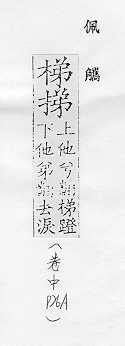 佩觿
梯挮
上他兮翻梯蹬
下他弟翻去淚
(卷中P26A)